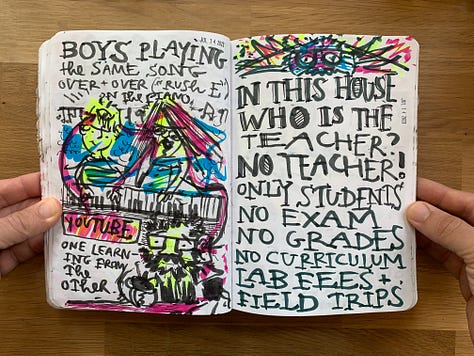 JUL 14 2023
BOYS PLAYING
the SAME SONG
OVER + OVER ("RUSH E")
ON the PIANO
YOUTUBE
ONE LEARN-
ING FROM
The
OTHER.
IN THIS HOUSE
WHO IS THE
TEACHER?
NO TEACHER!
ONLY STUDENTS
NO EXAM
NO GRADES
NO CURRICULUM
LAB FEES +
FIELD TRIPS